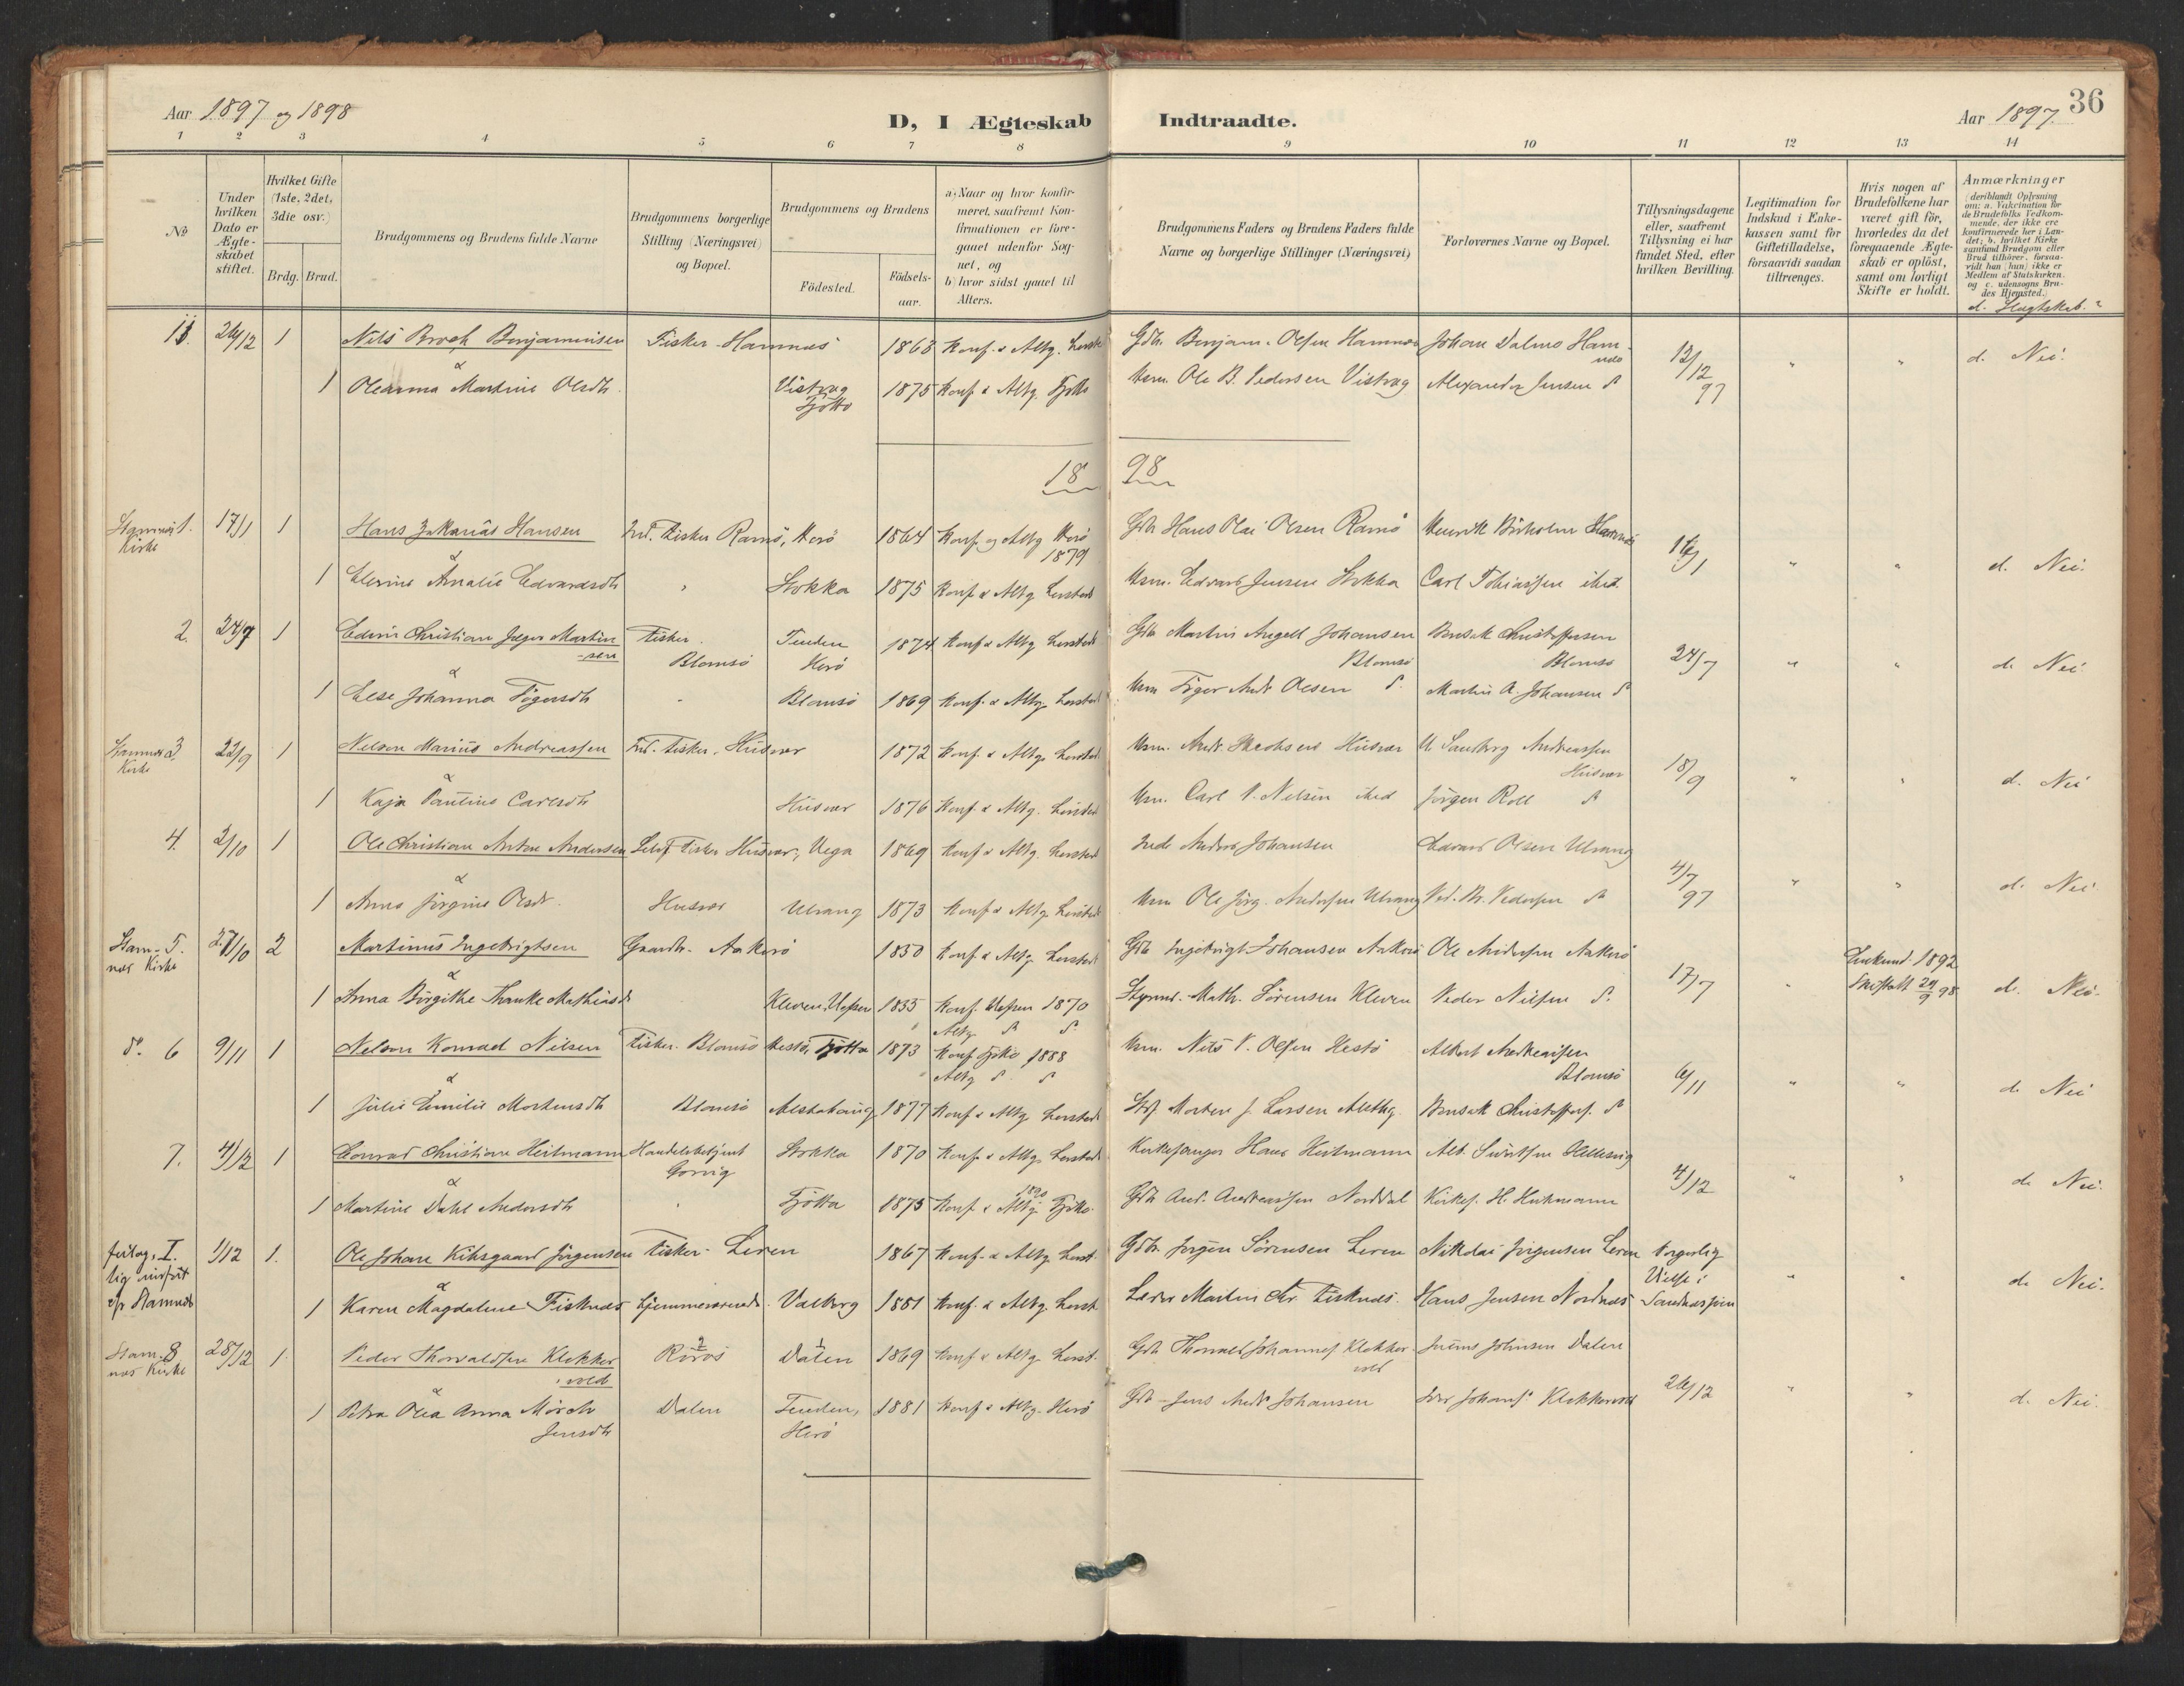 Aar 1897 og 1898
D, I Ægteskab Indtraadte.
Aar 1897. 36
1 2 3 4 5 6 7 8 9 10 11 12 13 14
No
Under hvilken Dato er Ægteskabet stiftet.
Hvilket Gifte (1ste, 2det, 3die osv.)
Brdg. Brud.
Brudgommens og Brudens fulde Navne
Brudgommens borgerlige Stilling (Næringsvei) og Bopæl.
Brudgommens og Brudens
Födested.
Födsels-aar.
a) Naar og hvor konfirmeret, saafremt Konfirmationen er foregaaet udenfor Sognet, og
b) hvor sidst gaaet til Alters.
Brudgommens Faders og Brudens Faders fulde Navne og borgerlige Stillinger (Næringsvei)
Forlovernes Navne og Bopæl.
Tillysningsdagene eller, saafremt Tillysning ei har fundet Sted, efter hvilken Bevilling.
Legitimation for Indskud i Enkekassen samt for Giftetilladelse, forsaavidt saadan tiltrænges.
Hvis nogen af Brudefolkene har været gift för, hvorledes da det foregaaende Ægteskab er oplöst, samt om lovligt Skifte er holdt.
Anmærkninger
(deriblandt Oplysning om: a. Vakcination for de Brudefolks Vedkommende, der ikke ere konfirmerede her i Landet; b. hvilket Kirkesamfund Brudgom eller Brud tilhörer, forsaavidt han (hun) ikke er Medlem af Statskirken, og c. udensogns Brudes Hjemsted.)
d. Slægtskab?
11. 26/12 1 Nils Broch Benjaminsen Fisker Hamnæs 1863 Konf. & Altg. Gdbr. Benjam. Olsen Hamnæs Johan Dalmo Hamnæs 12/12 97 " " d. Nei.
&
1 Oleanna Martine Olsdtr. Vistvæg Tjøtta 1875 Konf. & Altg. Tjøtta Husm. Ole B. Pedersen Vistvæg Alexander Jensen do
18 98
Stamnæs Kirke 1. 17/1 1 Hans Zakarias Hansen Ind. Fisker Ramö, Herö 1864 Konf. og Altg Herö 1879 Gdbr Hans Olai Olsen Ramö Henrik Birkholm Stamnæs 16/1 " " d. Nei.
&
1 Elerine Amalie Edvardsdtr " Stokka 1875 Konf & Altg Husm. Edvard Jensen Stokka Carl Tobiassen ibid.
2. 24/7 1 Edvin Christian Jæger Martinsen Fisker Blomsö Tenden Herö 1874 Konf & Altg Gdbr Martin Angell Johansen Blomsö Christoffersen Blomsö 24/7 " " d. Nei.
&
1 Else Johanna Tögersdtr " Blomsö 1869 Konf. & Altg Husm Töger Andr Olsen do. Martin A. Johansen do
Stamnæs Kirke 3. 22/9 1 Nelson Marius Andreassen Ind. Fisker. Husvær 1872 Konf. & Altg. Husm. Andr. Husvær Andreassen Husvær 18/9 " " d. Nei
&
1 Kaja Pauline Carlsdtr Husvær 1876 Konf. & Altg. Husm. Carl N. Nelsen ibid Jörgen Roll do
4. 2/10 1 Ole Christian Anton Andersen Fisker Husvær, Vega 1869 Konf & Altg. Anders Johansen Edvard Olsen Ulvang 4/7 97 " " d. Nei
&
1 Anna Jörgine Olsdtr. Husvær Ulvang 1873 Konf & Altg Husm Ole Jörg. Andersen Ulvang Ped. Br. Pedersen do
Stamnæs Kirke 5. 27/10 2 Martinus Ingebrigtsen Gaardbr. Aakerö 1850 Konf & Altg Gdbr Ingebrigt Johansen Aakerö Ole Andersen Aakerö 17/7 " Enkemd. 1892 29/9 98 d. Nei.
&
1 Anna Birgithe Thanke Mathiasdr Kleven, Vefsen 1855 Konf. Vefsen 1870 Altg do do Math. Sörensen Kleven Peder Nilsen do.
do. 6 9/11 1 Nelson Konrad Nilsen Fisker. Blomsö Hestö, Tjøtta 1873 Konf Tjøtta 1888 Altg do. do Husm. Nils P. Olsen Hestö Albert Andreassen Blomsö 6/11 " " d. Nei
&
1 Julie Emilie Mortensdtr Blomsö Alstahaug 1877 Konf & Altg Morten J. Larsen Alsthg. do
7. 4/12 1 Conrad Christian Heitmann Handelsbetjent Stokka 1870 Konf. & Altg. Kirkesanger Hans Heitmann Alb. 4/12 " " d. Nei.
&
1 Martine Dahl Andersdtr " Tjötta 1875 Konf & 1890 Altg Tjötta. Gdbr And. Andreassen Norddal Kirkes. H. Heitmann
I. 1/12 1. Ole Johan Kihsgaard Jörgensen Fisker. Leren 1867 Konf. & Altg Gdbr. Jörgen Sörensen Leren Nikolai Jörgensen Leren borgerlig Vielse i Sandnessjöen " " d. Nei.
&
1 Karen Magdalene Fisknæs hjemmeværende. Valberg 1881 Konf. & Altg Lærer Martin Chr. Fisknæs. Hans Jensen Nordnæs
Stamnæs Kirke 8 28/12 1. Peder Thorvaldsen Klokkervold Röros Dalen 1869 Konf & Altg Gdbr Thorvald Johannes. Klokkervold Johnsen Dalen 26/12 " " d. Nei.
&
1 Petra Olea Anna Mörch Jensdtr Dalen Tenden, Herö 1881 Konf & Altg. Herö Gdbr Jens Andr. Johansen Johans. Klokkervold